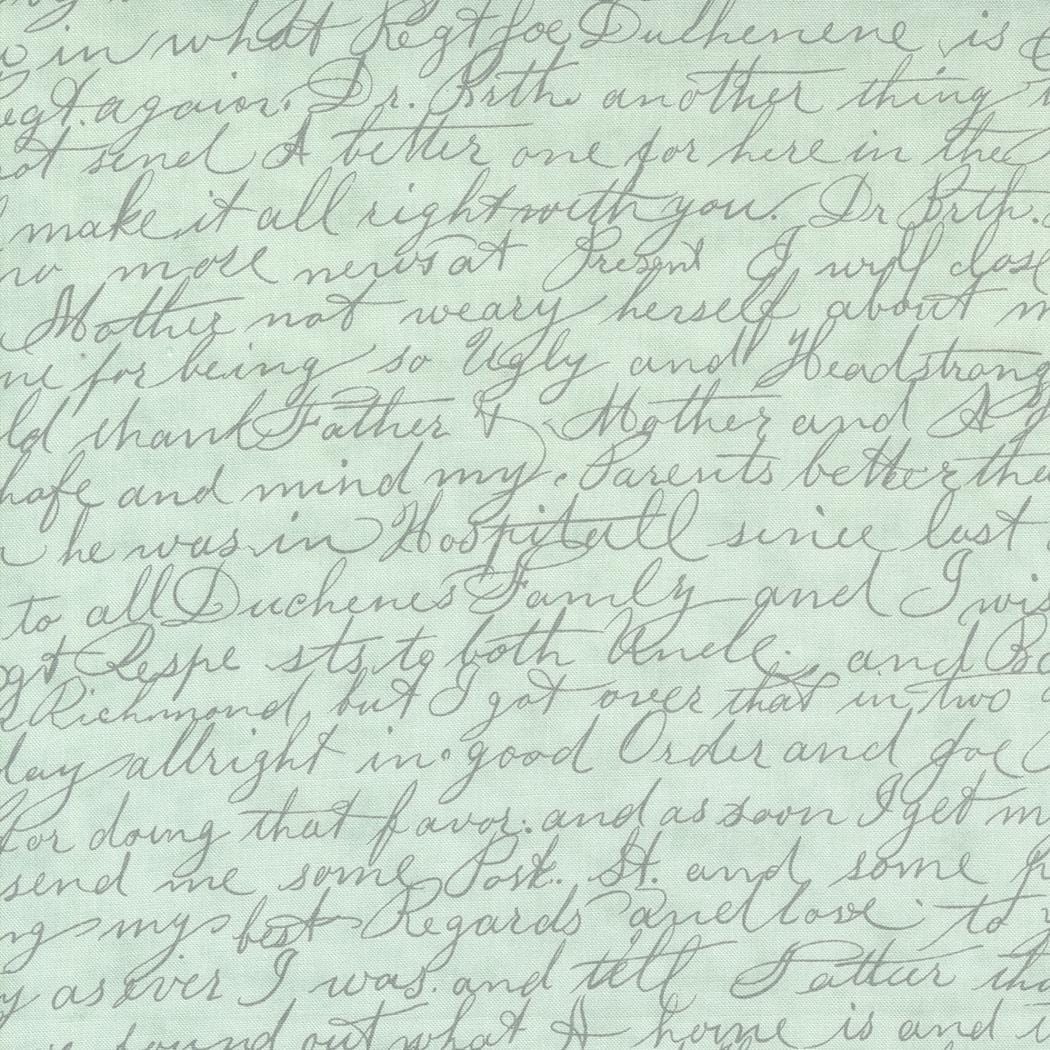 in what Regt Joe Duchenene is
Regt. again. Dr. Brth. another thing
not send A better one for here in the
make it all right with you. Dr Brth.
no more news at Present I will close
Mother not weary herself about m
me for being so Ugly and Headstrong
ld thank Father & Mother and A
hafe and mind my. Parents better the
he was in Hospitall since last
to all Duchenes Family and I wis
gt Respe sts to both Uncle. and Bo
Richmond, but I got over that in two
day allright in good Order and Joe
for doing that favor. and as soon I get m
send me some Post. St. and some p
ng my best Regards and love to
y as ever I was. and tell Father tha
found out what A home is and